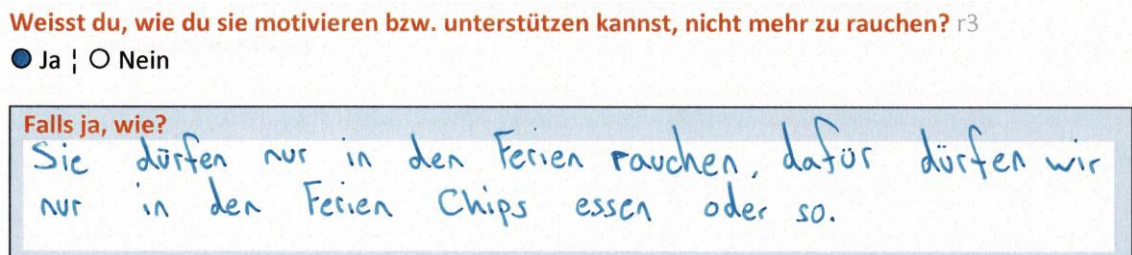 Weisst du, wie du sie motivieren bzw. unterstützen kannst, nicht mehr zu rauchen? r3
Ja ¦ O Nein
Falls ja, wie?
Sie dürfen nur in den Ferien rauchen, dafür dürfen wir
nur in den Ferien Chips essen oder so.